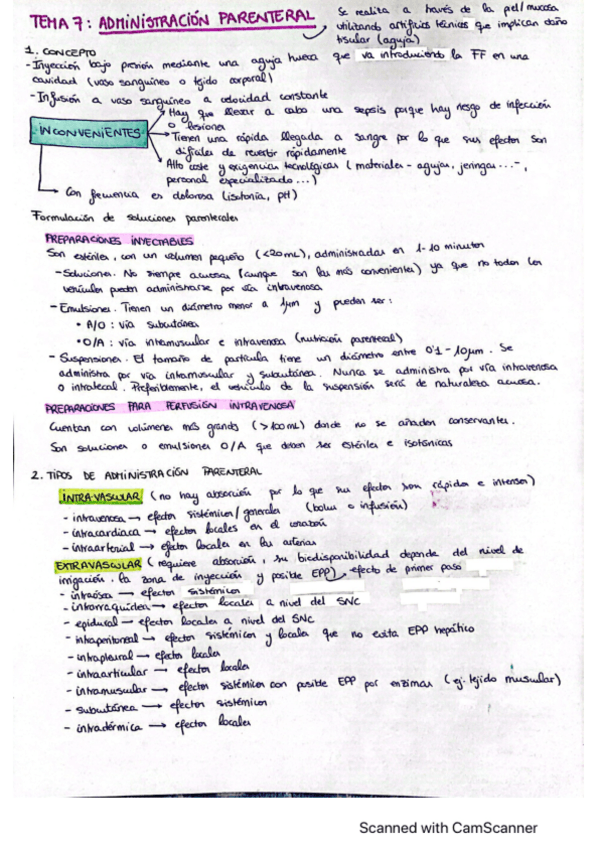 TEMA 7: ADMINISTRACIÓN PARENTERAL
Se realiza a través de la piel/mucosa
utilizando artificios técnicos que implican daño
tisular (aguja)
1. CONCEPTO
- Inyección bajo presión mediante una aguja hueca que va introduciendo la FF en una
cavidad (vaso sanguíneo o tejido corporal)
- Infusión a vaso sanguíneo a velocidad constante
INCONVENIENTES
Hay que llevar a cabo una sepsis porque hay riesgo de infección
o lesiones
Tienen una rápida llegada a sangre por lo que sus efectos son
difíciles de revertir rápidamente
Alto coste y exigencias tecnológicas (materiales - agujas, jeringas...-,
personal especializado...)
Con frecuencia es dolorosa (isotonía, pH)
Formulación de soluciones parenterales
PREPARACIONES INYECTABLES
Son estériles, con un volumen pequeño (<20mL), administradas en 1-10 minutos
- Soluciones. No siempre acuosas (aunque son las más convenientes) ya que no todos los
vehículos pueden administrarse por vía intravenosa
- Emulsiones. Tienen un diámetro menor a 1μm y pueden ser:
• A/O: vía subcutánea
• O/A: vía intramuscular e intravenosa (nutrición parenteral)
- Suspensiones. El tamaño de partícula tiene un diámetro entre 0'1-10μm. Se
administra por vía intramuscular y subcutánea. Nunca se administra por vía intravenosa
o intratecal. Preferiblemente, el vehículo de la suspensión será de naturaleza acuosa.
PREPARACIONES PARA PERFUSIÓN INTRAVENOSA
Cuentan con volúmenes más grands (>100mL) donde no se añaden conservantes.
Son soluciones o emulsiones O/A que deben ser estériles e isotónicas
2. TIPOS DE ADMINISTRACIÓN PARENTERAL
INTRAVASCULAR (no hay absorción por lo que sus efectos son rápidos e intensos)
- intravenosa → efectos sistémicos/generales (bolus o infusión)
- intracardiaca → efectos locales en el corazón
- intraarterial → efectos locales en las arterias
EXTRAVASCULAR (requiere absorción, su biodisponibilidad depende del nivel de
irrigación, la zona de inyección y posible EPP) → efecto de primer paso
- intraósea → efectos sistémicos
- intrarraquídea → efectos locales a nivel del SNC
- epidural → efectos locales a nivel del SNC
- intraperitoneal → efectos sistémicos y locales que no evita EPP hepático
- intrapleural → efectos locales
- intraarticular → efectos locales
- intramuscular → efectos sistémicos con posible EPP por enzimas (ej. tejido muscular)
- subcutánea → efectos sistémicos
- intradérmica → efectos locales
Scanned with CamScanner